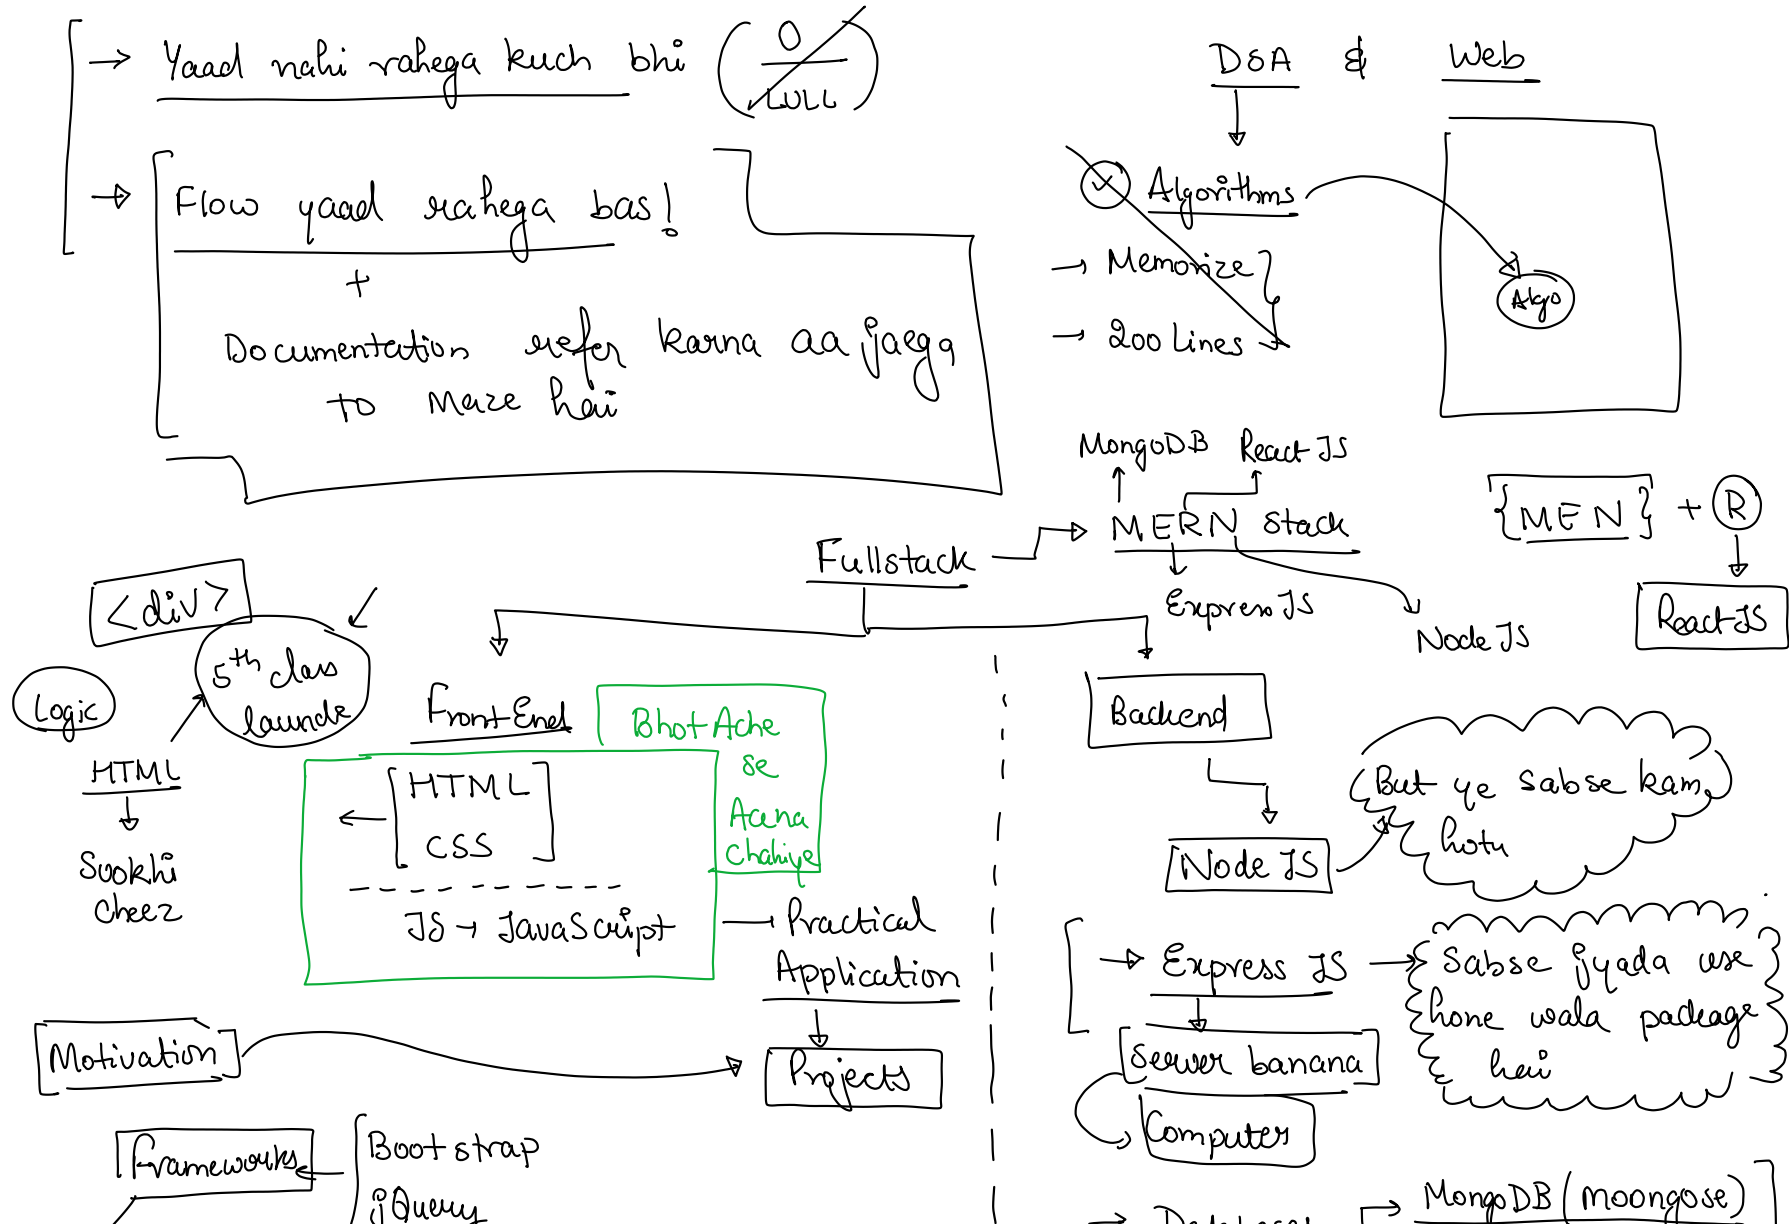 → Yaad nahi rahega kuch bhi (0
LULL)
→ Flow yaad rahega bas!
+
Documentation refer karna aa jaega
to Maze hai
DSA & Web
Algorithms
→ Memorize
→ 200 Lines
Algo
MongoDB React JS
MERN Stack
Express JS
Node JS
{MEN} + R
React JS
Fullstack
<div>
5th class
launde
Logic
HTML
Sookhi
cheez
FrontEnd
HTML
CSS
JS → JavaScript
Bhot Ache
se
Aana
chahiye
Practical
Application
Projects
Motivation
Frameworks
Bootstrap
jQuery
Backend
Node JS
But ye sabse kam
hota
→ Express JS →
Sabse jyada use
hone wala package
hai
Server banana
Computer
→ Databases
→ MongoDB (moongose)